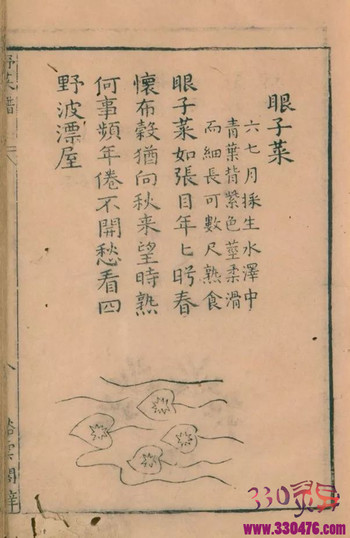 眼子菜
六七月採生水澤中
青葉背紫色莖柔滑
而細長可數尺熟食
眼子菜如張目年匕盻春
懷布穀猶向秋来望時熟
何事頻年倦不開愁看四
野波漂屋
野菜譜
八
330
www.330476.com